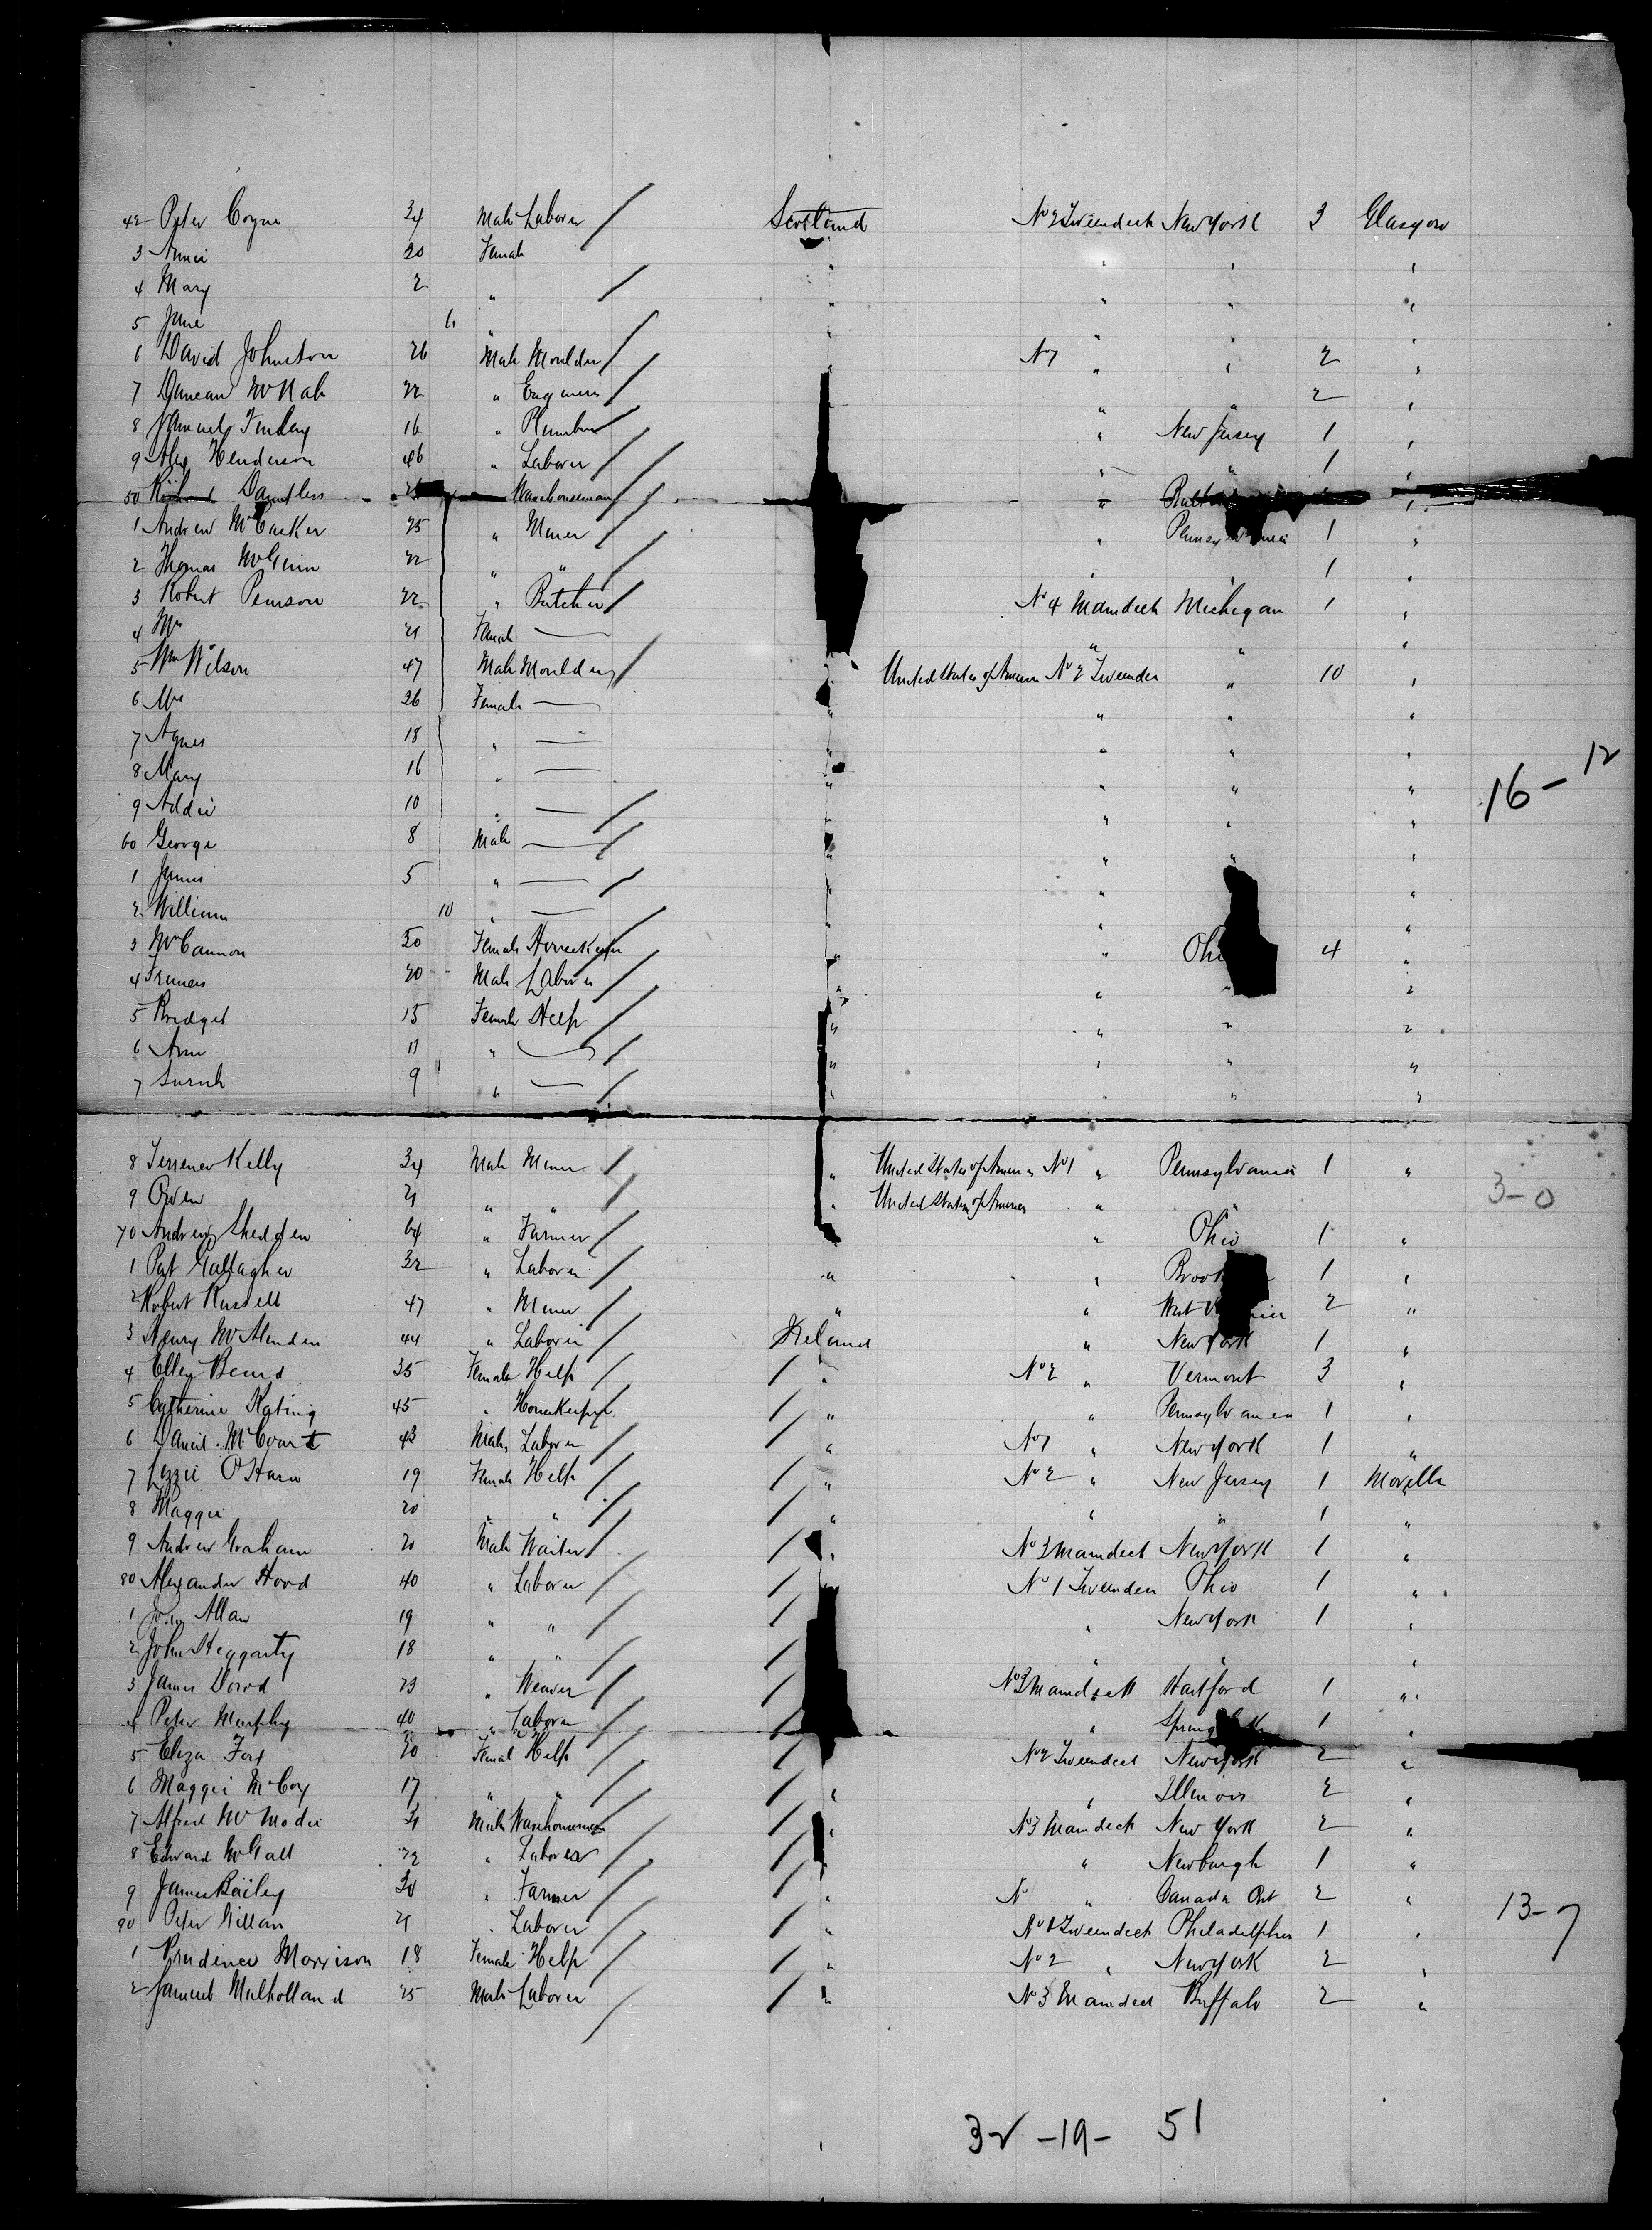 42 Peter Coyne 34 Male Laborer Scotland No 2 Tweendeck New York 3 Glasgow
3 Annie 20 Female " " " "
4 Mary 2 " " " " "
5 Jane 6 " " " " "
6 David Johnston 26 Male Moulder " No 1 " " 2 "
7 Duncan McNab 22 " Engineer " " 2 "
8 Findlay 16 " Plumber " New Jersey 1 "
9 Alex Henderson 46 " Laborer " " 1 "
50 Richard Dauntless Warehouseman " "
1 Andrew McCusker 25 " Miner " Pennsylvania 1 "
2 Thomas McGinn 22 " " " " 1 "
3 Robert Pearson 22 " Butcher No 4 Maindeck Michigan 1 "
4 Mrs 21 Female — " " "
5 Wm Wilson 47 Male Moulder United States of America No 2 Tweendeck " 10 "
6 Mrs 36 Female — " " " "
7 Agnes 18 " — " " " "
8 Mary 16 " — " " " "
9 Addie 10 " — " " " "
16-12
60 George 8 Male — " " " "
1 James 5 " — " " " "
2 William 10 " — " " "
3 Mrs Cannon 50 Female Housekeeper " " Ohi 4 "
4 Frances 20 Male Laborer " " " "
5 Bridget 15 Female Help " " " "
6 Ann 11 " — " " " "
7 Sarah 9 " — " " " "
8 Terrence Kelly 34 Male Miner " United States of America No 1 " Pennsylvania 1 "
9 Owen 21 " " " United States of America " "
3-0
70 Andrew Shedden 64 " Farmer " " Ohio 1 "
1 Pat Gallagher 32 " Laborer " " Brook 1 "
2 Robert Russell 47 " Miner " " West V nia 2 "
3 Henry 44 " Laborer Ireland " New York 1 "
4 Ellen Beard 35 Female Help " No 2 " Vermont 3 "
5 Catherine Kating 45 " Housekeeper " " Pennsylvania 1 "
6 Daniel McCourt 43 Male Laborer " No 1 " New York 1 "
7 Lizzie O'Hara 19 Female Help " No 2 " New Jersey 1 Moville
8 Maggie 20 " " " " " 1 "
9 Andrew Graham 20 Male Waiter " No 3 Maindeck New York 1 "
80 Alexander Hood 40 " Laborer No 1 Tweendeck Ohio 1 "
1 John Allan 19 " " " New York 1 "
2 John Heggarty 18 " " " " "
3 James Dowd 23 " Weaver No 3 Maindeck Hartford 1 "
4 Peter Murphy 40 " Laborer " Spring 1 "
5 Eliza Fox 20 Female Help No 2 Tweendeck New York 2 "
6 Maggie McCoy 17 " " " " Illinois 2 "
7 Alfred 21 Male Warehouseman " No 3 Maindeck New York 2 "
8 Edward McGall 22 " Laborer " Newburgh 1 "
9 James Bailey 30 " Farmer " No " Canada Ont 2 "
90 Peter Gillan 21 " Laborer " No 1 Tweendeck Philadelphia 1 "
13-7
1 Prudence Morrison 18 Female Help " No 2 " New York 2 "
2 Samuel Mulholland 25 Male Laborer " No 3 Maindeck Buffalo 2 "
32 -19- 51